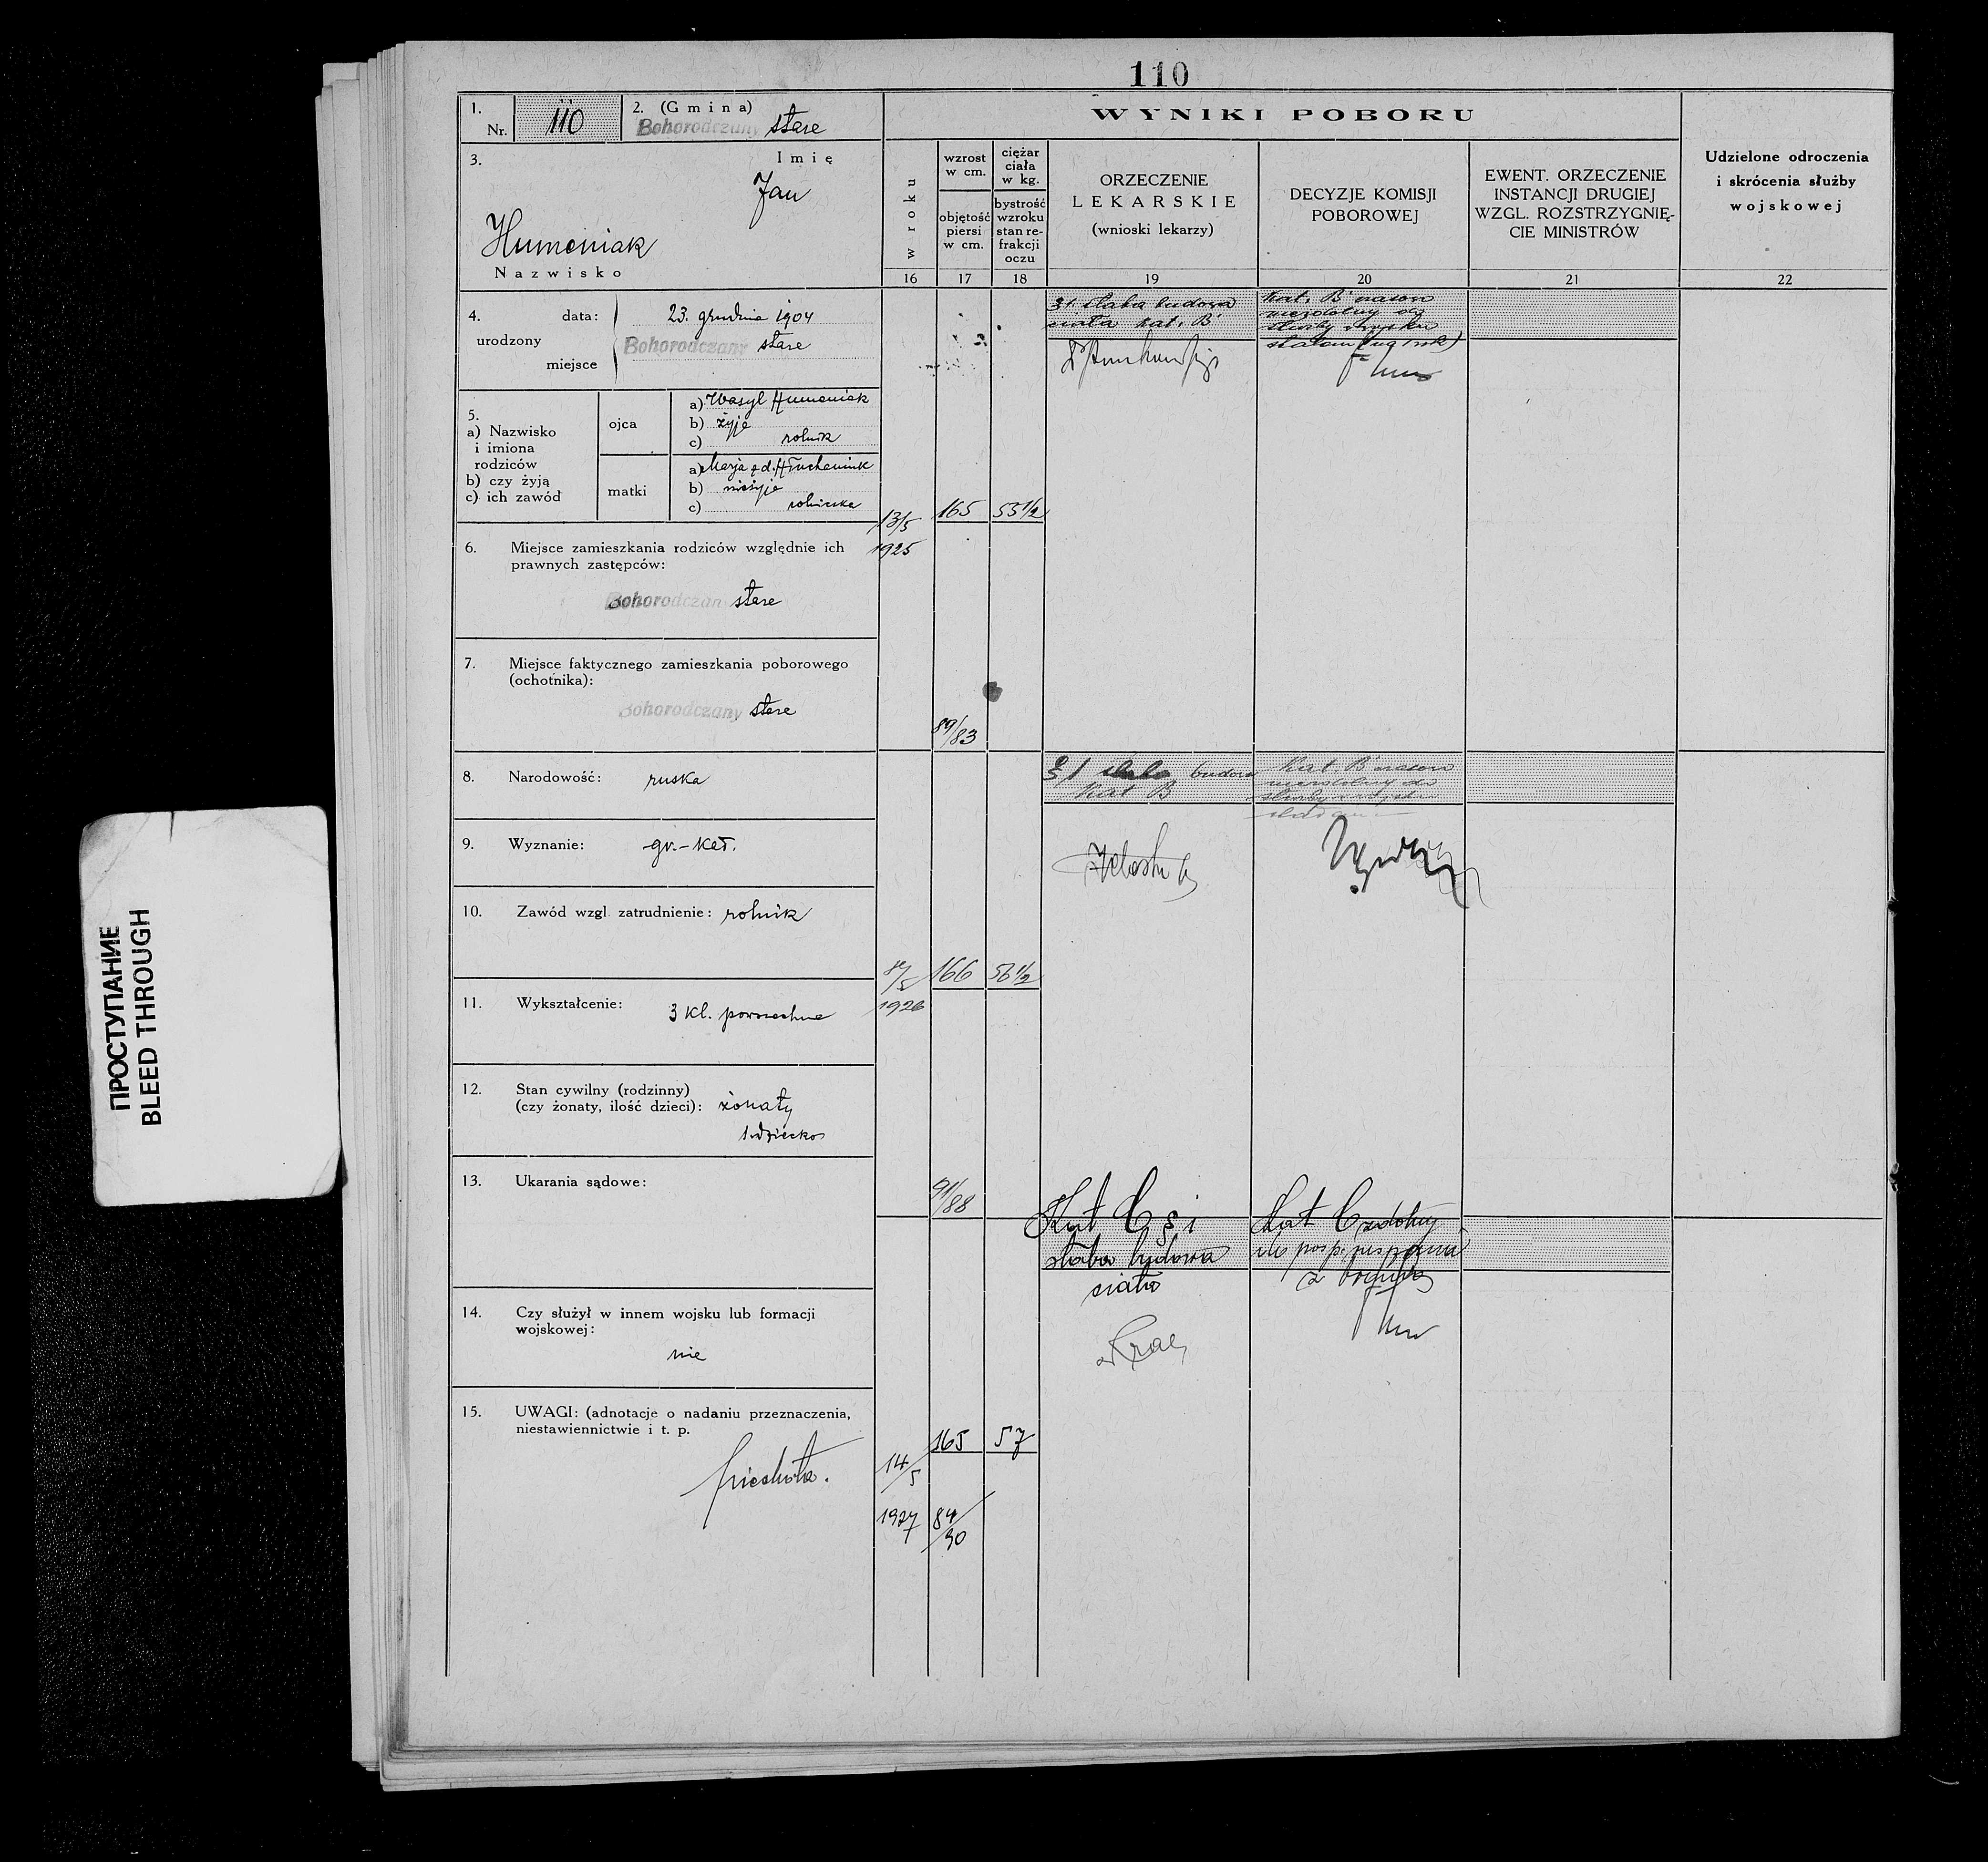 110
1.
Nr. 110
2. (Gmina)
Bohorodczany stare
3. Imię
Jan
Humeniak
Nazwisko
4. data: 23. grudnia 1904
urodzony
Bohorodczany stare
miejsce
5.
a) Nazwisko
i imiona
rodziców
b) czy żyją
c) ich zawód
ojca
a) Wasyl Humeniak
b) żyje
c) rolnik
matki
a) Marja
b) nieżyje
c) rolniczka
6. Miejsce zamieszkania rodziców względnie ich
prawnych zastępców:
Bohorodczan stare
7. Miejsce faktycznego zamieszkania poborowego
(ochotnika):
Bohorodczany stare
8. Narodowość: ruska
9. Wyznanie: gr.-kat.
10. Zawód wzgl. zatrudnienie: rolnik
11. Wykształcenie: 3 kl. powszechne
12. Stan cywilny (rodzinny)
(czy żonaty, ilość dzieci): żonaty
1 dziecko
13. Ukarania sądowe:
14. Czy służył w innem wojsku lub formacji
wojskowej:
nie
15. UWAGI: (adnotacje o nadaniu przeznaczenia,
niestawiennictwie i t. p.
piechota.
WYNIKI POBORU
w roku
16
wzrost
w cm.
objętość
piersi
w cm.
17
ciężar
ciała
w kg.
bystrość
wzroku
stan re-
frakcji
oczu
18
ORZECZENIE
LEKARSKIE
(wnioski lekarzy)
19
DECYZJE KOMISJI
POBOROWEJ
20
EWENT. ORZECZENIE
INSTANCJI DRUGIEJ
WZGL. ROZSTRZYGNIĘ-
CIE MINISTRÓW
21
Udzielone odroczenia
i skrócenia służby
wojskowej
22
13/5
1925
165
55 1/2
89/83
słaba budowa
ciała kat. B
Kat. B czasowo
niezdolny do
służby
1926
166
56 1/2
91/88
budowa
Kat B
Kat B czasowo
niezdolny do
służby
14/5
1927
165
57
84/90
Kat C § 1
słaba budowa
ciała
Kat C zdolny
do posp. ruszenia
z bronią
ПРОСТУПАНИЕ
BLEED THROUGH